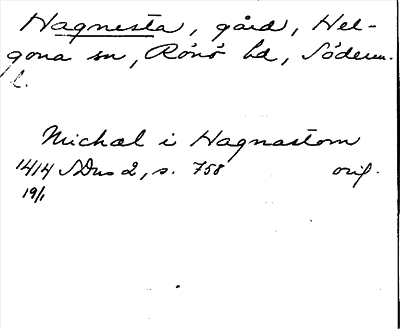 Hagnesta, gård, Hel-
gona sn, Rönö hd, Söderm.
l.
Michal i Hagnastom
1414 SDns 2, s. 758 orig.
19/1